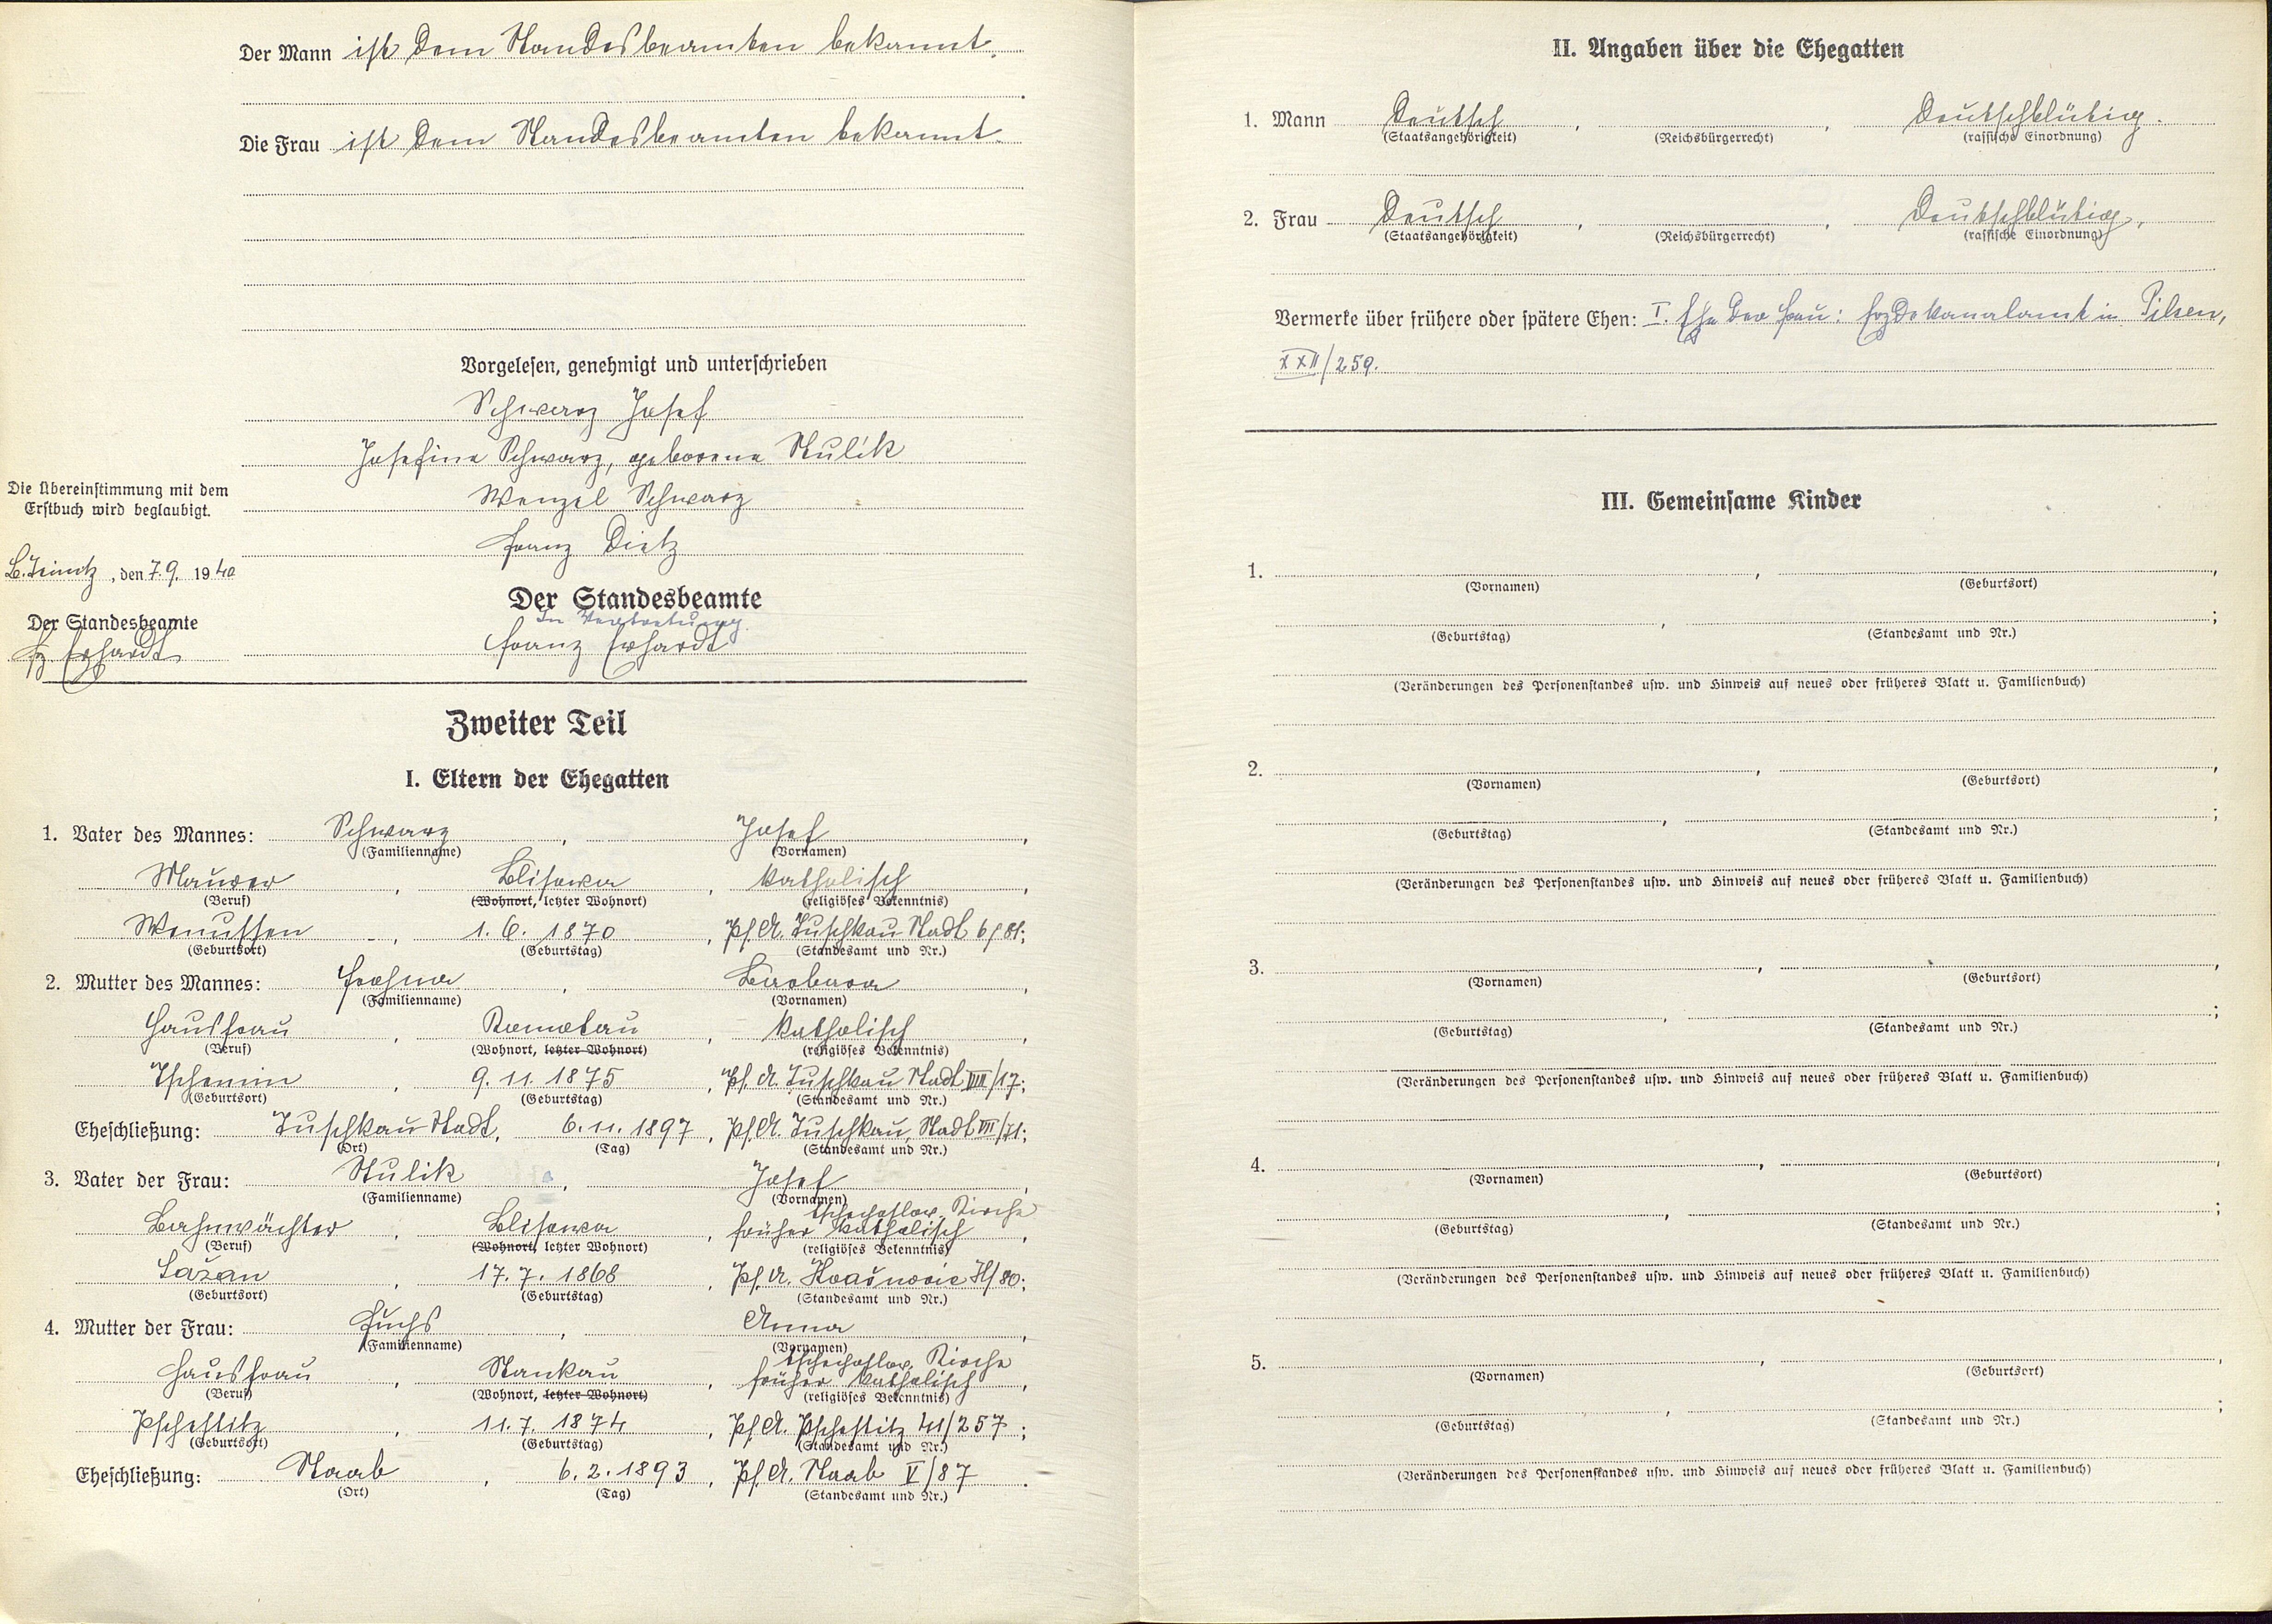 Der Mann ist dem Standesbeamten bekannt.
Die Frau ist dem Standesbeamten bekannt.
Vorgelesen, genehmigt und unterschrieben
Schwarz Josef
Josefine Schwarz, geborene Stulik
Wenzel Schwarz
Franz Dietz
Die Übereinstimmung mit dem
Erstbuch wird beglaubigt.
B. Teinitz, den 7.9. 1940
Der Standesbeamte
Fz Erhardt
Der Standesbeamte
In Vertretung
Franz Erhardt
Zweiter Teil
I. Eltern der Ehegatten
1. Vater des Mannes: Schwarz, Josef,
(Familienname) (Vornamen)
Maurer, Blisowa, katholisch,
(Beruf) (Wohnort, letzter Wohnort) (religiöses Bekenntnis)
Wenussen, 1. 6. 1870, Pf. A. Tuschkau Stadt 6/81;
(Geburtsort) (Geburtstag) (Standesamt und Nr.)
2. Mutter des Mannes: Barbara,
(Familienname) (Vornamen)
Hausfrau, katholisch,
(Beruf) (Wohnort, letzter Wohnort) (religiöses Bekenntnis)
Tschemin, 9. 11. 1875, Pf. A. Tuschkau Stadt VIII/17;
(Geburtsort) (Geburtstag) (Standesamt und Nr.)
Eheschließung: Tuschkau Stadt, 6. 11. 1897, Pf. A. Tuschkau, Stadt VIII/71;
(Ort) (Tag) (Standesamt und Nr.)
3. Vater der Frau: Stulik, Josef,
(Familienname) (Vornamen)
tschechoslow. Kirche
Bahnwächter, Blisowa, früher katholisch,
(Beruf) (Wohnort, letzter Wohnort) (religiöses Bekenntnis)
Lažan, 17. 7. 1868, Pf. A. /80;
(Geburtsort) (Geburtstag) (Standesamt und Nr.)
4. Mutter der Frau: Fuchs, Anna,
(Familienname) (Vornamen)
tschechoslow. Kirche
Hausfrau, Stankau, früher katholisch,
(Beruf) (Wohnort, letzter Wohnort) (religiöses Bekenntnis)
Pschestitz, 11. 7. 1874, Pf. A. Pschestitz 41/257;
(Geburtsort) (Geburtstag) (Standesamt und Nr.)
Eheschließung: Staab, 6. 2. 1893, Pf. A. Staab V/87.
(Ort) (Tag) (Standesamt und Nr.)
II. Angaben über die Ehegatten
1. Mann Deutsch, , Deutschblütig.
(Staatsangehörigkeit) (Reichsbürgerrecht) (rassische Einordnung)
2. Frau Deutsch, , Deutschblütig,
(Staatsangehörigkeit) (Reichsbürgerrecht) (rassische Einordnung)
Vermerke über frühere oder spätere Ehen: I. Ehe der Frau: Erzdekanalamt in Pilsen,
XXII/259.
III. Gemeinsame Kinder
1. , ,
(Vornamen) (Geburtsort)
, ;
(Geburtstag) (Standesamt und Nr.)
(Veränderungen des Personenstandes usw. und Hinweis auf neues oder früheres Blatt u. Familienbuch)
2. , ,
(Vornamen) (Geburtsort)
, ;
(Geburtstag) (Standesamt und Nr.)
(Veränderungen des Personenstandes usw. und Hinweis auf neues oder früheres Blatt u. Familienbuch)
3. , ,
(Vornamen) (Geburtsort)
, ;
(Geburtstag) (Standesamt und Nr.)
(Veränderungen des Personenstandes usw. und Hinweis auf neues oder früheres Blatt u. Familienbuch)
4. , ,
(Vornamen) (Geburtsort)
, ;
(Geburtstag) (Standesamt und Nr.)
(Veränderungen des Personenstandes usw. und Hinweis auf neues oder früheres Blatt u. Familienbuch)
5. , ,
(Vornamen) (Geburtsort)
, ;
(Geburtstag) (Standesamt und Nr.)
(Veränderungen des Personenstandes usw. und Hinweis auf neues oder früheres Blatt u. Familienbuch)